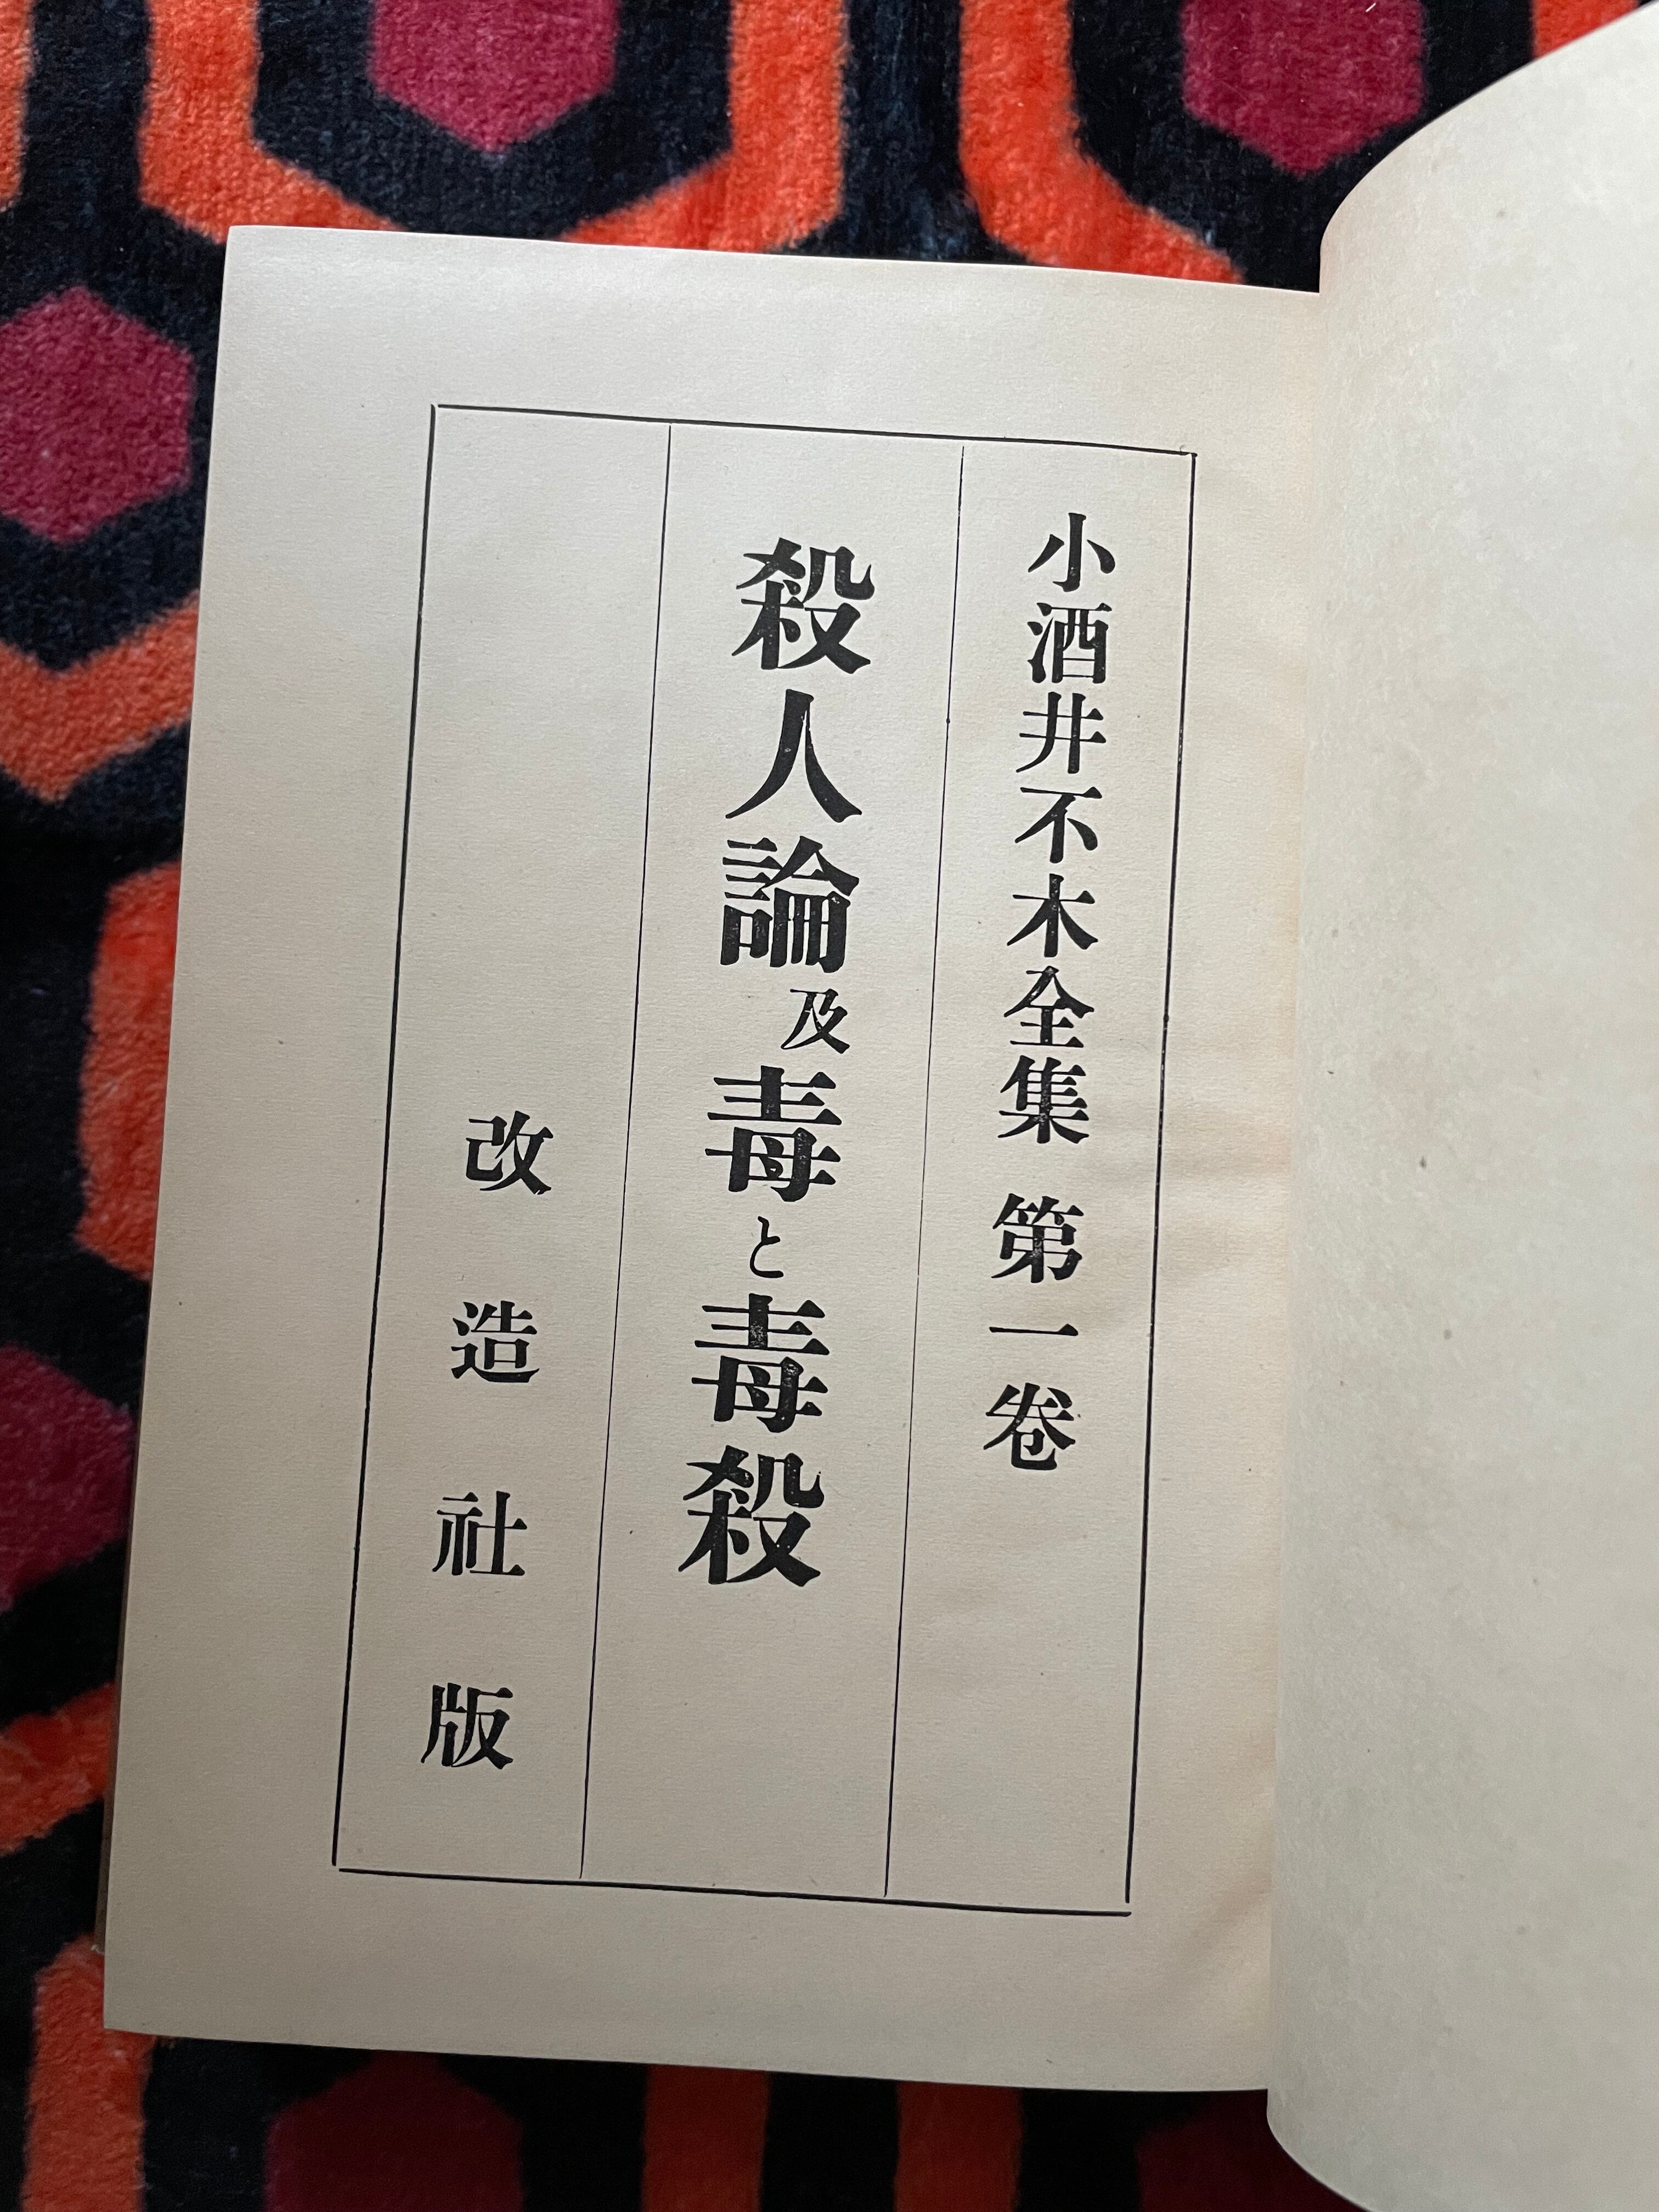 小酒井不木全集 第一卷
殺人論及毒と毒殺
改造社版